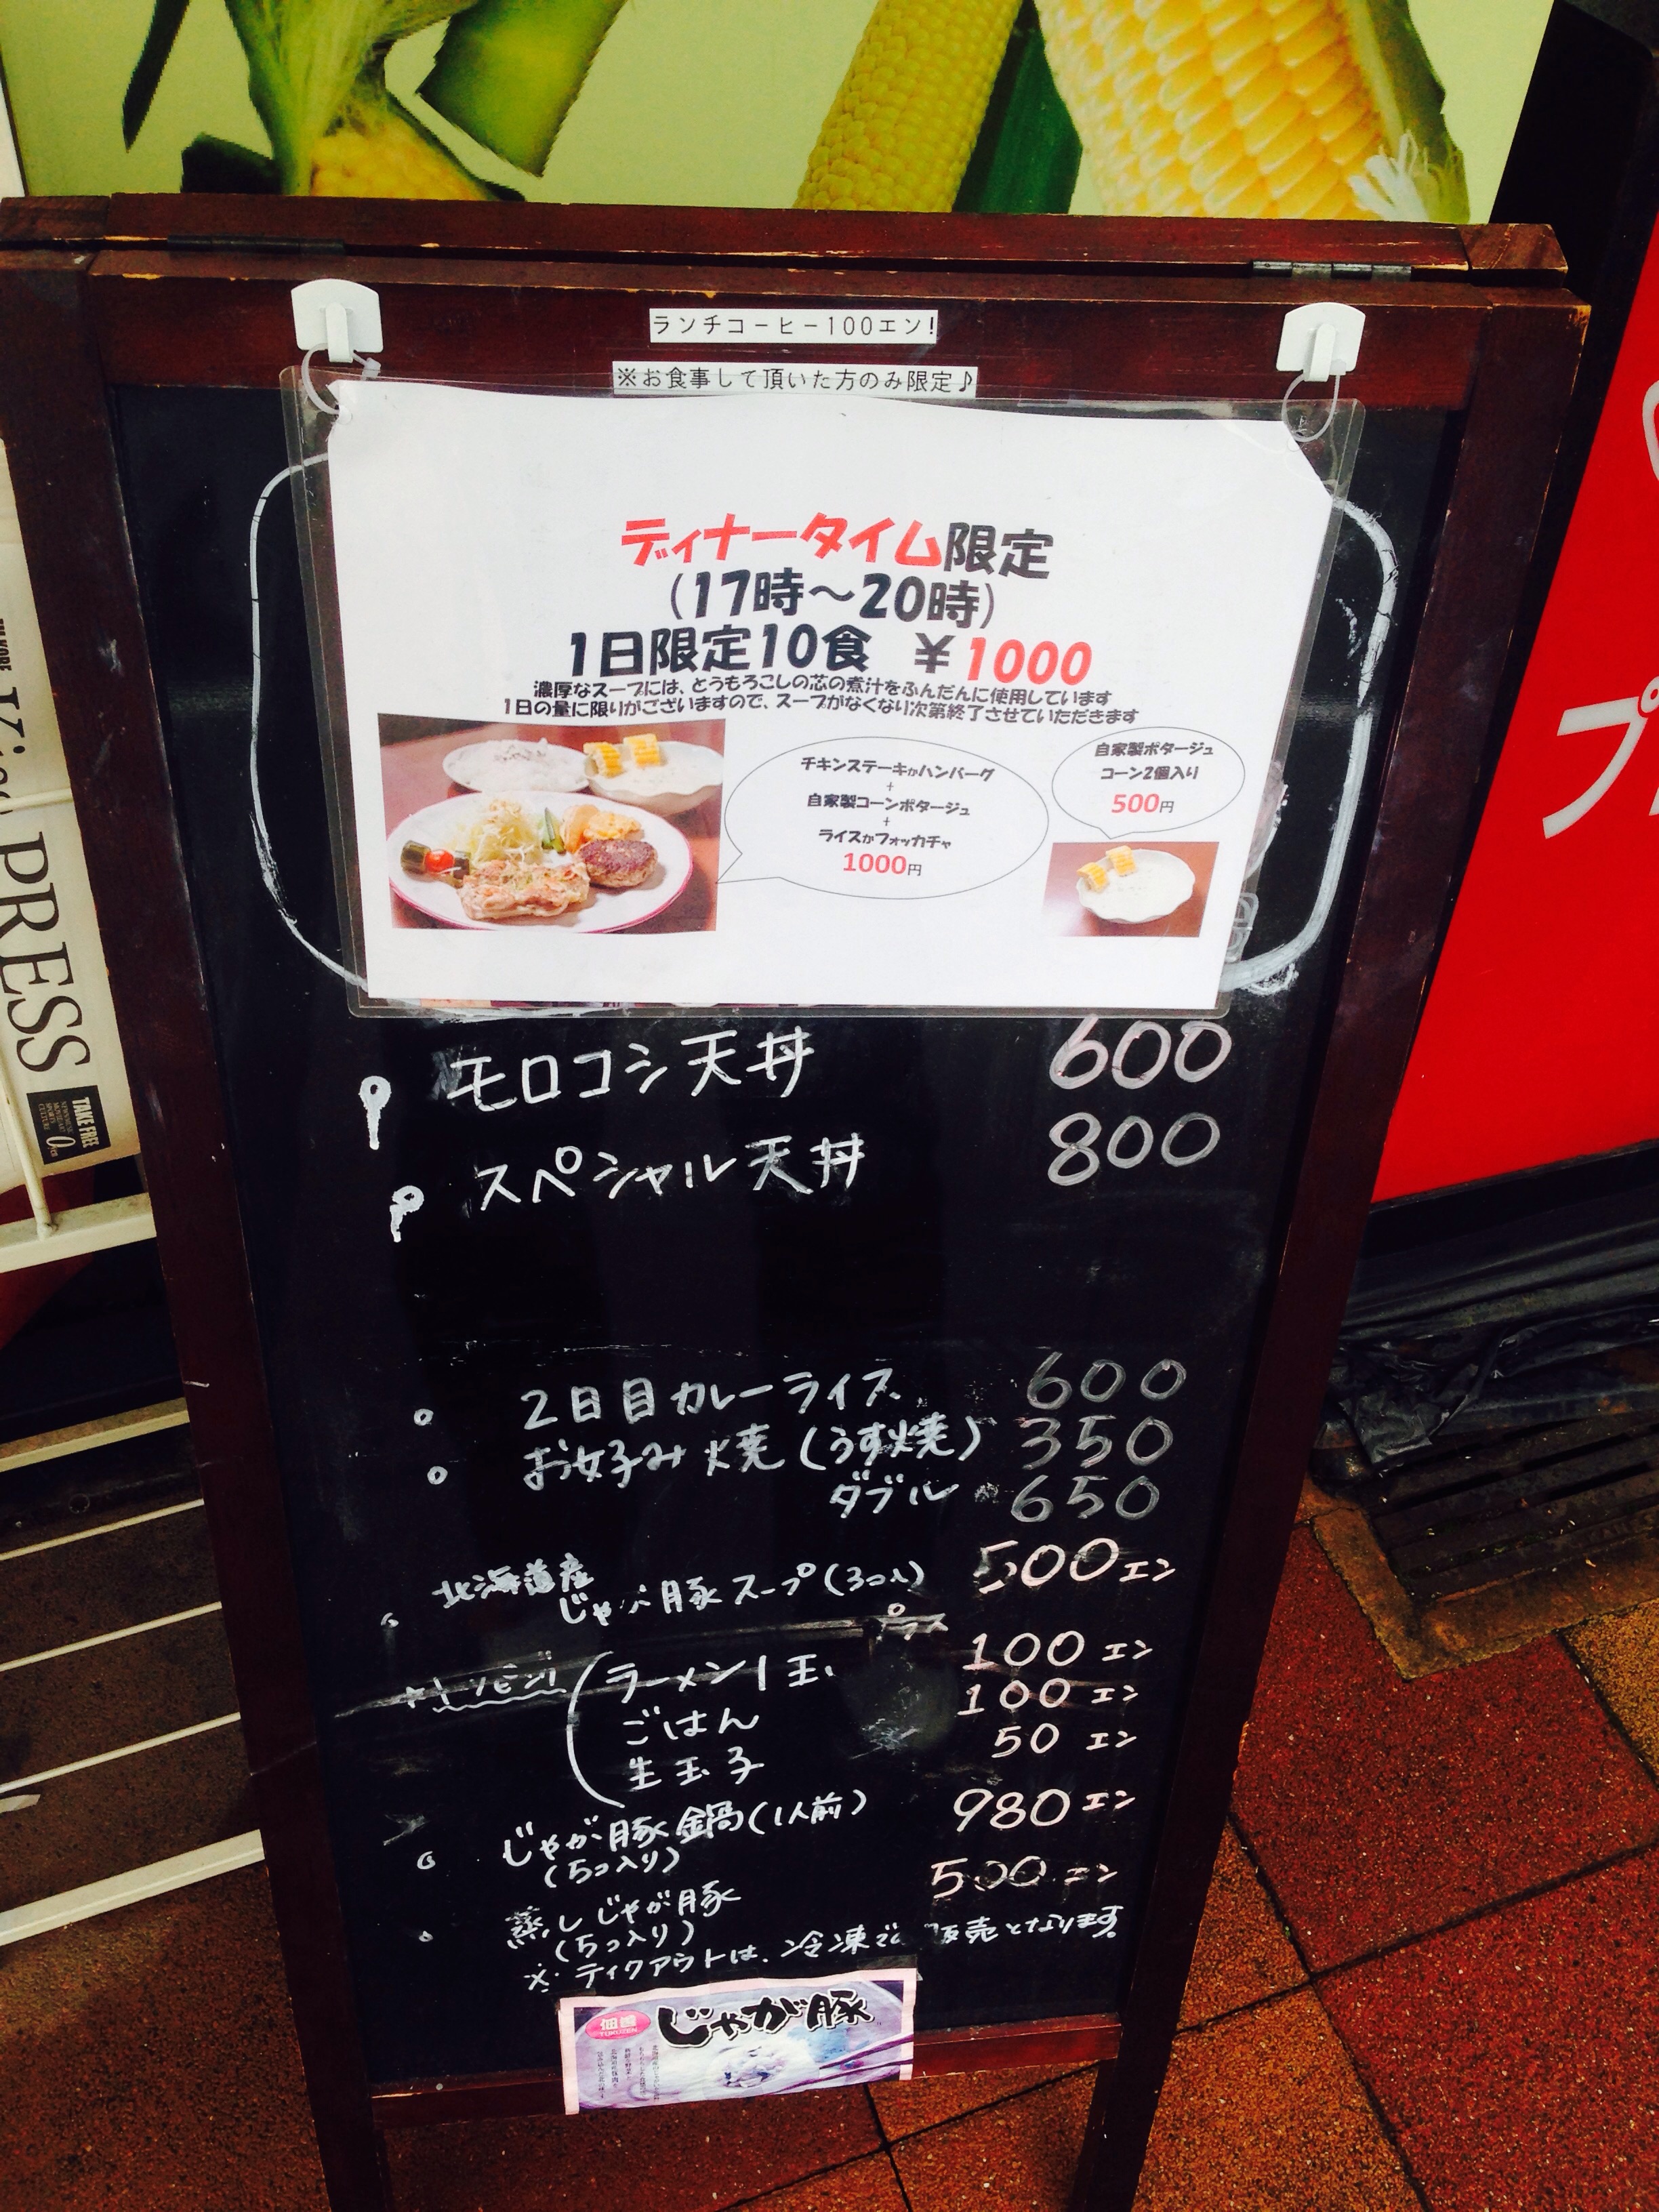 ランチコーヒー100エン!
※お食事して頂いた方のみ限定♪
ディナータイム限定
(17時～20時)
1日限定10食 ￥1000
濃厚なスープには、とうもろこしの芯の煮汁をふんだんに使用しています
1日の量に限りがございますので、スープがなくなり次第終了させていただきます
チキンステーキかハンバーグ
+
自家製コーンポタージュ
+
ライスかフォッカチャ
1000円
自家製ポタージュ
コーン2個入り
500円
モロコシ天丼 600
スペシャル天丼 800
2日目カレーライス 600
お好み焼(うす焼) 350
ダブル 650
北海道産
じゃが豚スープ(3コ入) 500エン
プラス
ラーメン1玉 100エン
ごはん 100エン
生玉子 50エン
じゃが豚鍋(1人前) 980エン
(5コ入り)
蒸しじゃが豚 500エン
(5コ入り)
※テイクアウトは、冷凍で販売となります。
じゃが豚
PRESS
TAKE FREE
プ